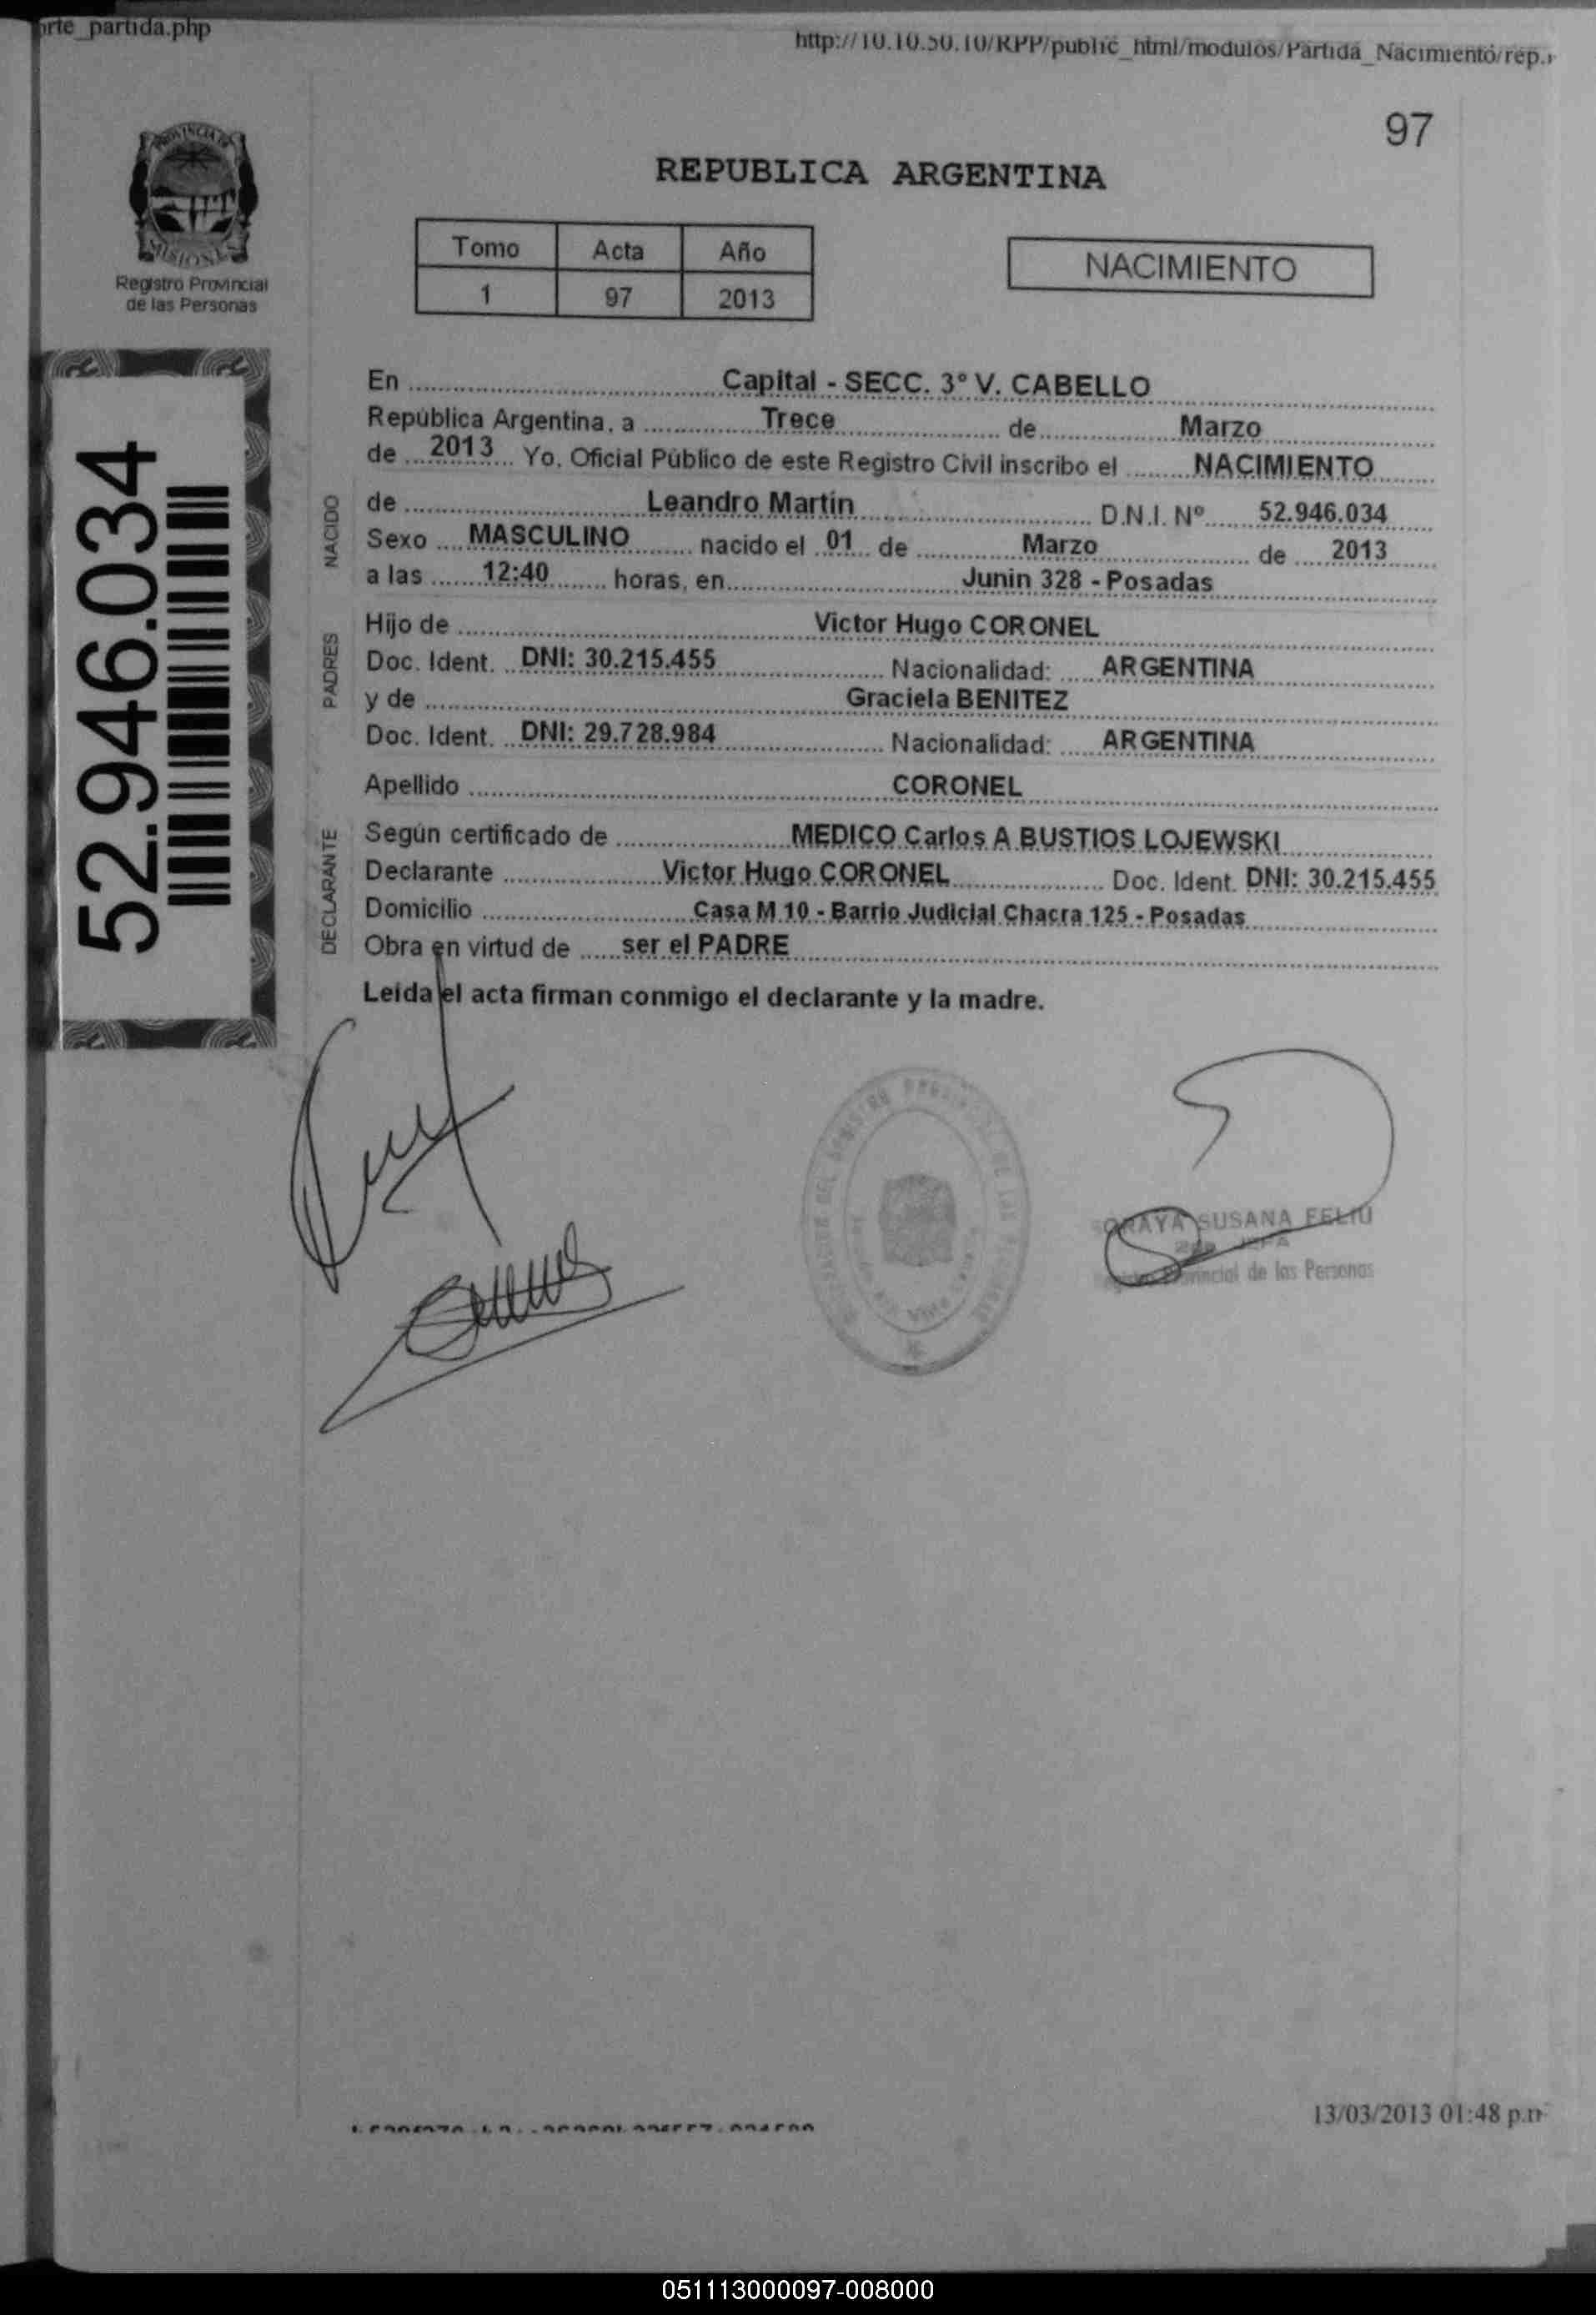 orte_partida.php
http://10.10.50.10/RPP/public_html/modulos/Partida_Nacimiento/rep.
97
PROVINCIA DE
MISIONES
Registro Provincial
de las Personas
REPUBLICA ARGENTINA
Tomo Acta Año
1 97 2013
NACIMIENTO
52.946.034
En Capital - SECC. 3° V. CABELLO
República Argentina, a Trece de Marzo
de 2013 Yo, Oficial Público de este Registro Civil inscribo el NACIMIENTO
NACIDO
de Leandro Martín D.N.I. Nº 52.946.034
Sexo MASCULINO nacido el 01 de Marzo de 2013
a las 12:40 horas, en Junin 328 - Posadas
PADRES
Hijo de Victor Hugo CORONEL
Doc. Ident. DNI: 30.215.455 Nacionalidad: ARGENTINA
y de Graciela BENITEZ
Doc. Ident. DNI: 29.728.984 Nacionalidad: ARGENTINA
Apellido CORONEL
DECLARANTE
Según certificado de MEDICO Carlos A BUSTIOS LOJEWSKI
Declarante Victor Hugo CORONEL Doc. Ident. DNI: 30.215.455
Domicilio Casa M 10 - Barrio Judicial Chacra 125 - Posadas
Obra en virtud de ser el PADRE
Leída el acta firman conmigo el declarante y la madre.
SORAYA SUSANA FELIU
JEFA
Provincial de las Personas
13/03/2013 01:48 p.m
051113000097-008000